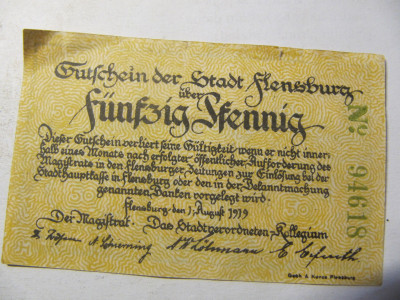 Gutschein der Stadt Flensburg
über
Fünfzig Pfennig
Dieser Gutschein verliert seine Gültigkeit wenn er nicht inner-
halb eines Monats nach erfolgter öffentlicher Aufforderung des
Magistrats in den Flensburger Zeitungen zur Einlösung bei der
Stadthauptkasse in Flensburg oder den in der Bekanntmachung
genannten Banken vorgelegt wird.
Flensburg den 1. August 1919
Der Magistrat. Das Stadtverordneten-Kollegium
No. 94618
Flensburg